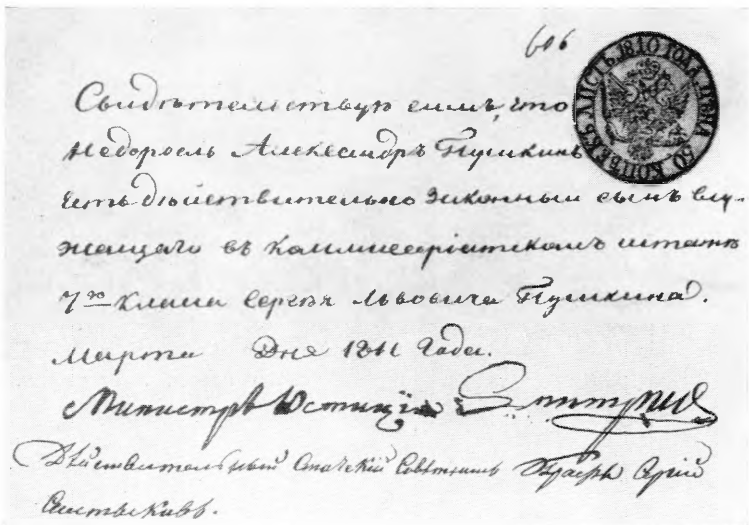 606
ЛИСТЪ 1810 ГОДА. ЦѢНА 50 КОПѢЕКЪ
Свидѣтельствую симъ, что
недоросль Александръ Пушкинъ
есть дѣйствительно законный сынъ слу-
жащаго въ Коммисеріатскомъ штатѣ
7го класса Сергѣя Львовича Пушкина.
Марта Дня 1811 Года.
Министръ Юстиціи Дмитріевъ
Дѣйствительный Статскій Совѣтникъ Графъ Сергій
Салтыковъ.